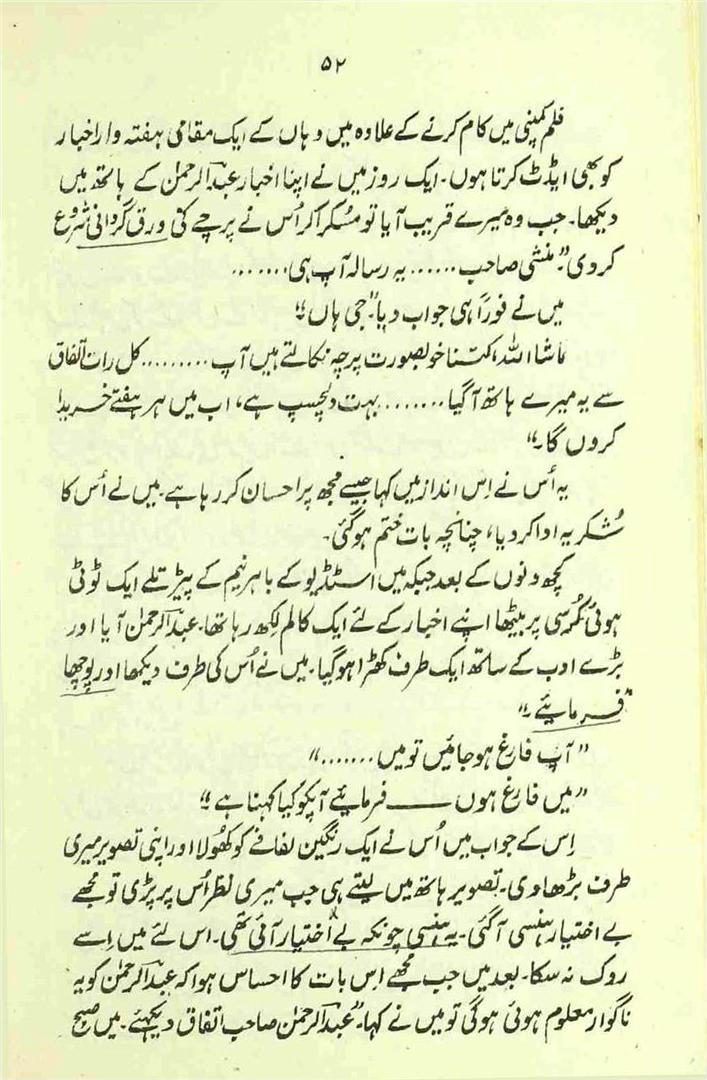 ۵۲
فلم کمپنی میں کام کرنے کے علاوہ میں وہاں کے ایک مقامی ہفتہ وار اخبار
کو بھی ایڈٹ کرتا ہوں۔ ایک روز میں نے اپنا اخبار عبدالرحمٰن کے ہاتھ میں
دیکھا۔ جب وہ میرے قریب آیا تو مُسکرا کر اُس نے پرچے کی ورق گردانی شروع
کر دی۔ "منشی صاحب ...... یہ رسالہ آپ ہی .......
میں نے فوراً ہی جواب دیا۔ "جی ہاں"
ماشا اللہ، کتنا خوبصورت پرچہ نکالتے ہیں آپ ......... کل رات اتفاق
سے یہ میرے ہاتھ آ گیا ........ بہت دلچسپ ہے، اب میں ہر ہفتے خریدا
کروں گا۔"
یہ اُس نے اِس انداز میں کہا جیسے مجھ پر احسان کر رہا ہے۔ میں نے اُس کا
شُکریہ ادا کر دیا، چنانچہ بات ختم ہو گئی۔
کچھ دنوں کے بعد جبکہ میں اسٹڈیو کے باہر نیم کے پیڑ تلے ایک ٹوٹی
ہوئی کُرسی پر بیٹھا اپنے اخبار کے لئے ایک کالم لکھ رہا تھا۔ عبدالرحمٰن آیا اور
بڑے ادب کے ساتھ ایک طرف کھڑا ہو گیا۔ میں نے اُس کی طرف دیکھا اور پوچھا
"فرمایئے۔"
"آپ فارغ ہو جائیں تو میں ......."
"میں فارغ ہوں —— فرمایئے آپکو کیا کہنا ہے"
اِس کے جواب میں اُس نے ایک رنگین لفافے کو کھولا اور اپنی تصویر میری
طرف بڑھا دی۔ تصویر ہاتھ میں لیتے ہی جب میری نظر اُس پر پڑی تو مجھے
بے اختیار ہنسی آ گئی۔ یہ ہنسی چونکہ بے اختیار آئی تھی۔ اس لئے میں اِسے
روک نہ سکا۔ بعد میں جب مجھے اِس بات کا احساس ہوا کہ عبدالرحمٰن کو یہ
ناگوار معلوم ہوئی ہو گی تو میں نے کہا۔ "عبدالرحمٰن صاحب اتفاق دیکھئے۔ میں صبح